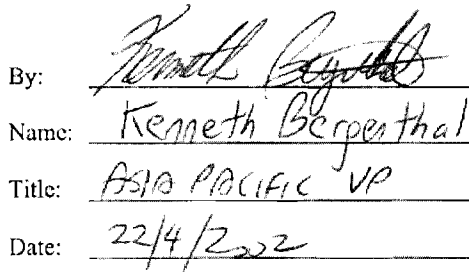 By: Kenneth
Name: Kenneth Bergenthal
Title: ASIA PACIFIC VP
Date: 22/4/2002